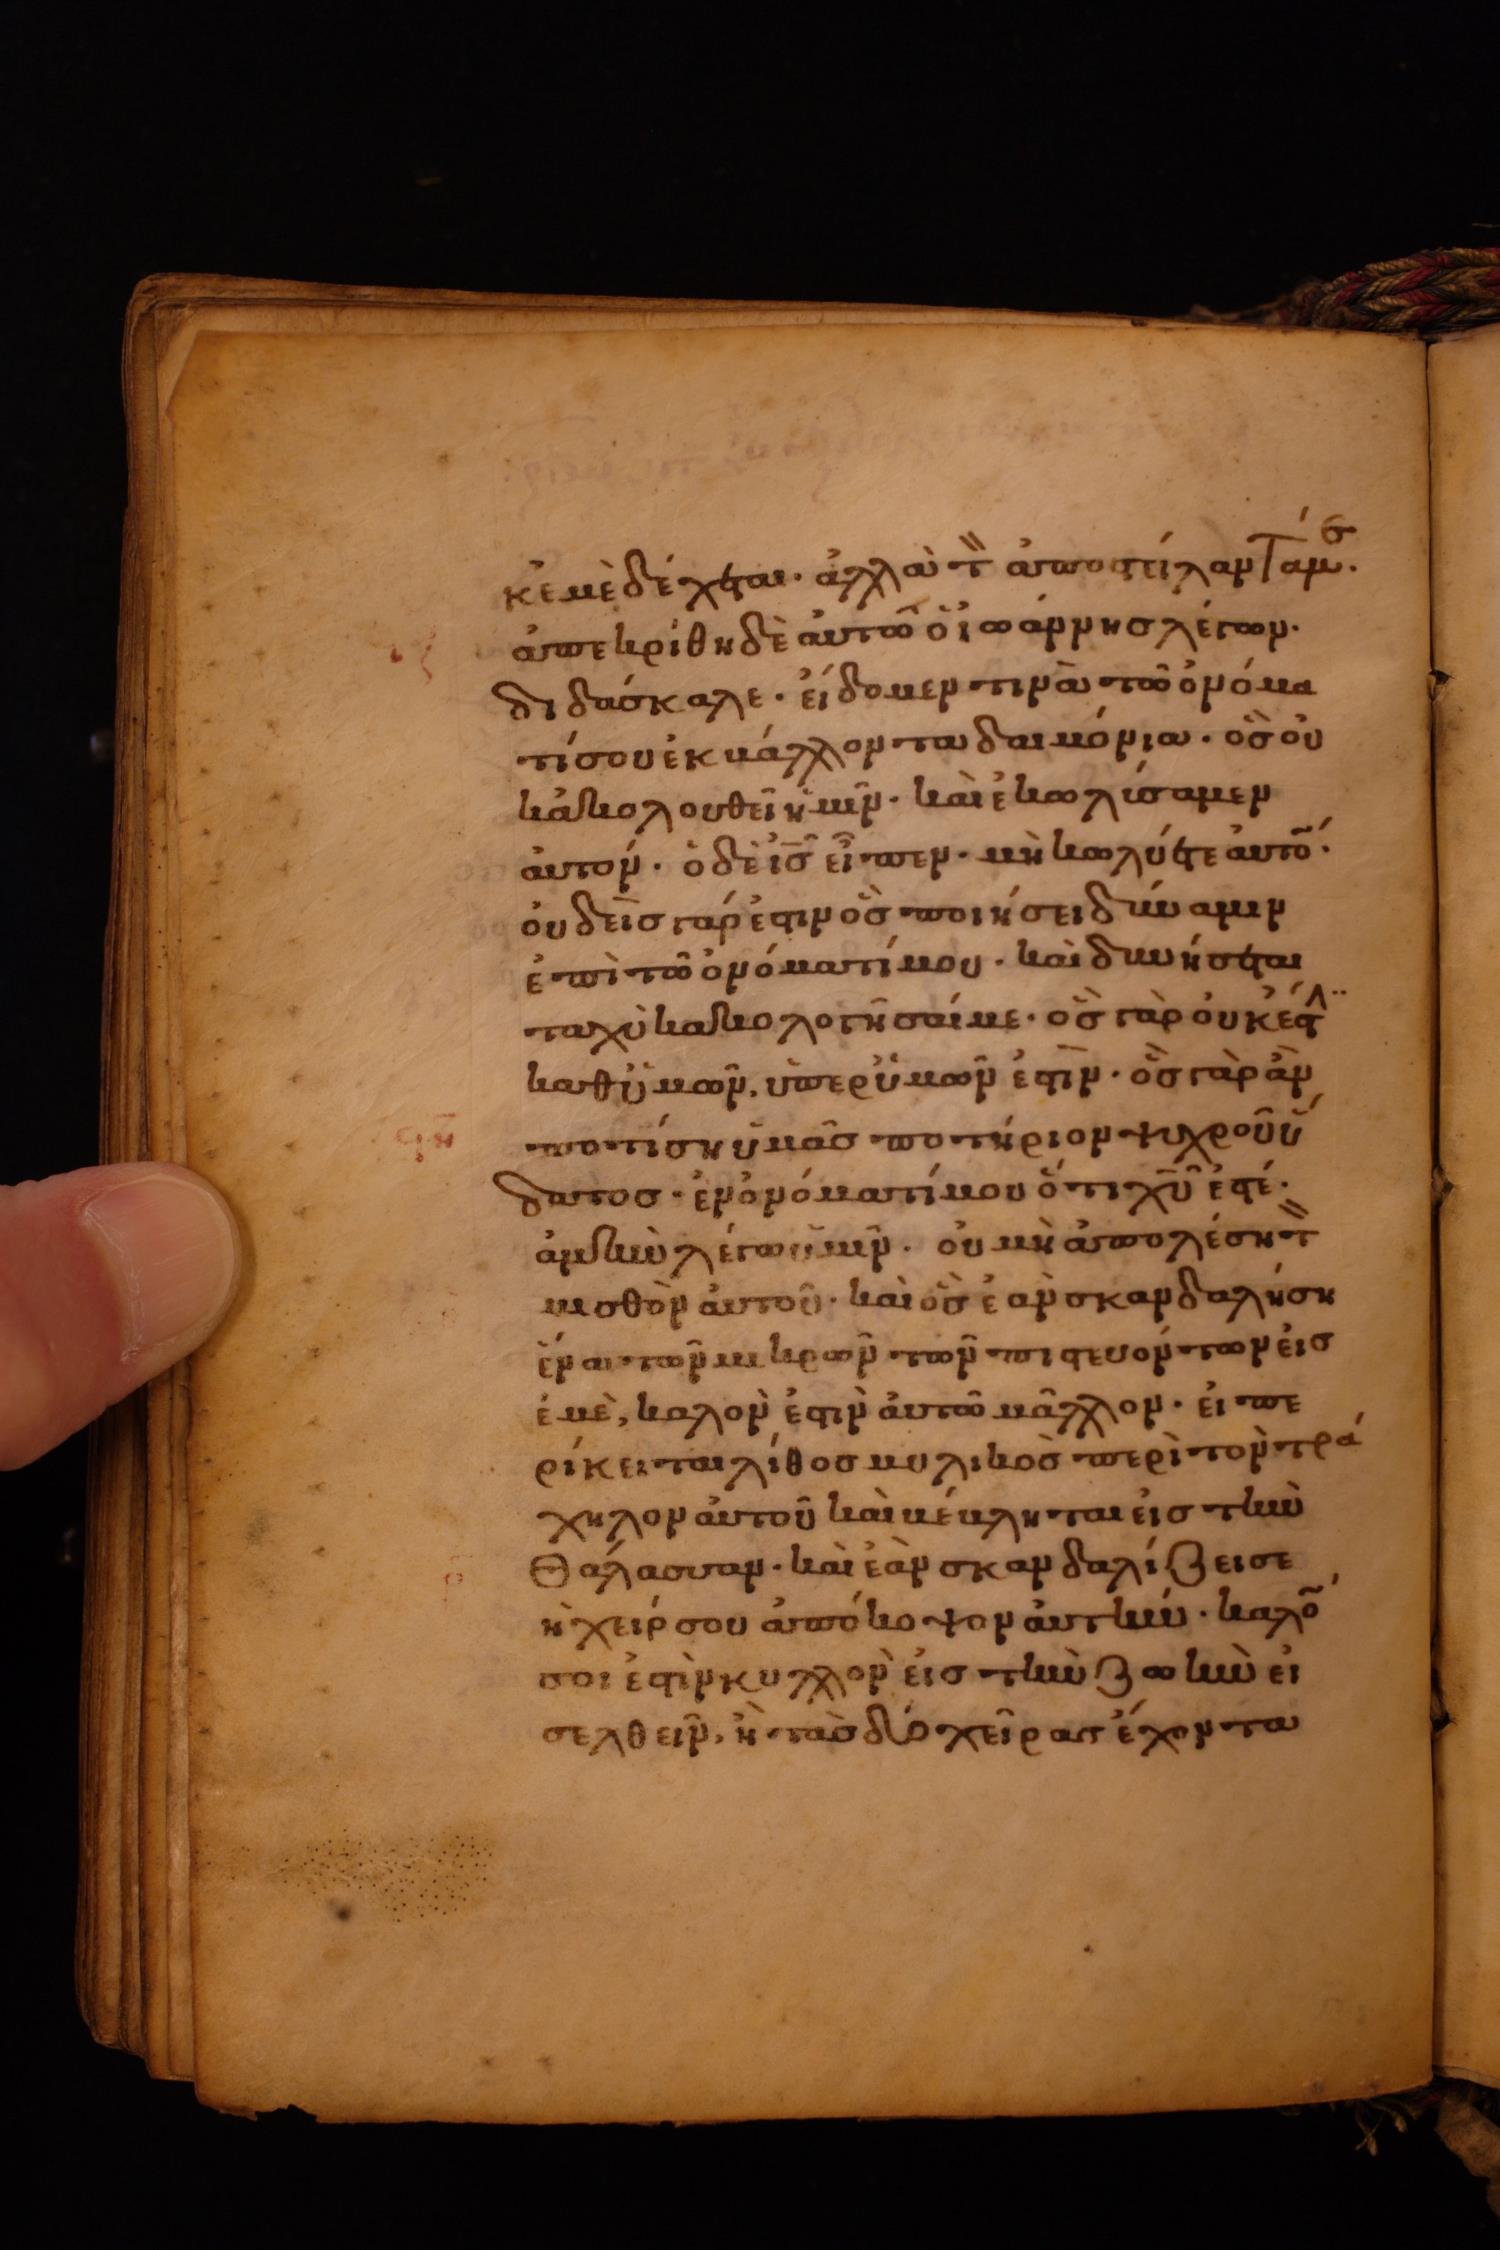 κἐμὲ δέχεται· ἀλλὰ τ̀ ἀποστείλαντάμε·
ἀπεκρίθη δὲ ἀυτῶ ὁ ἰωάννης λέγων·
διδάσκαλε· εἴδομεν τινὰ τῶ ὀνόμα
τί σου ἐκβάλλον τα δαιμόνια· ὃς οὐ
κἀκολουθεῖ ἡμῖν· καὶ ἐκωλύσαμεν
ἀυτόν· ὁ δὲ ις̅ εἶπεν· μὴ κωλύετε ἀυτὸ·
οὐδεῖς γάρ ἐστιν ὃς ποιήσει δύναμιν
ἐπὶ τῶ ὀνόματί μου· καὶ δυνήσεται
ταχὺ κακολογῆσαί με· ὃς γὰρ οὐκ ἔστ
καθ ὑμῶν, ὑπερ ὑμῶν ἐστὶν· ὃς γὰρ ἂν
ποτίση ὑμᾶς ποτήριον ψυχροῦ ὕ
δατος· ἐν ὀνόματί μου ὅτι χ̅υ̅ ἐστέ·
ἀμὴν λέγω ὑμῖν· οὐ μὴ ἀπολέση τ̀
μισθὸν ἀυτοῦ· καὶ ὃς ἐὰν σκανδαλήση
ἕνα τῶν μικρῶν τῶν πιστευόντων εἰς
ἐμὲ, καλὸν ἐστὶν ἀυτῶ μᾶλλον· εἰ πε
ρίκειται λίθος μυλικὸς περὶ τὸν τρά
χηλον ἀυτοῦ καὶ βέβληται εἰς τὴν
Θάλασσαν· καὶ ἐὰν σκανδαλίζει σε
ἡ χείρ σου ἀπόκοψον ἀυτήν· καλὸ
σοι ἐστὶν κυλλὸν εἰς τὴν ζωὴν εἰ
σελθεῖν, ἢ τὰς δύο χεῖρας ἔχοντα